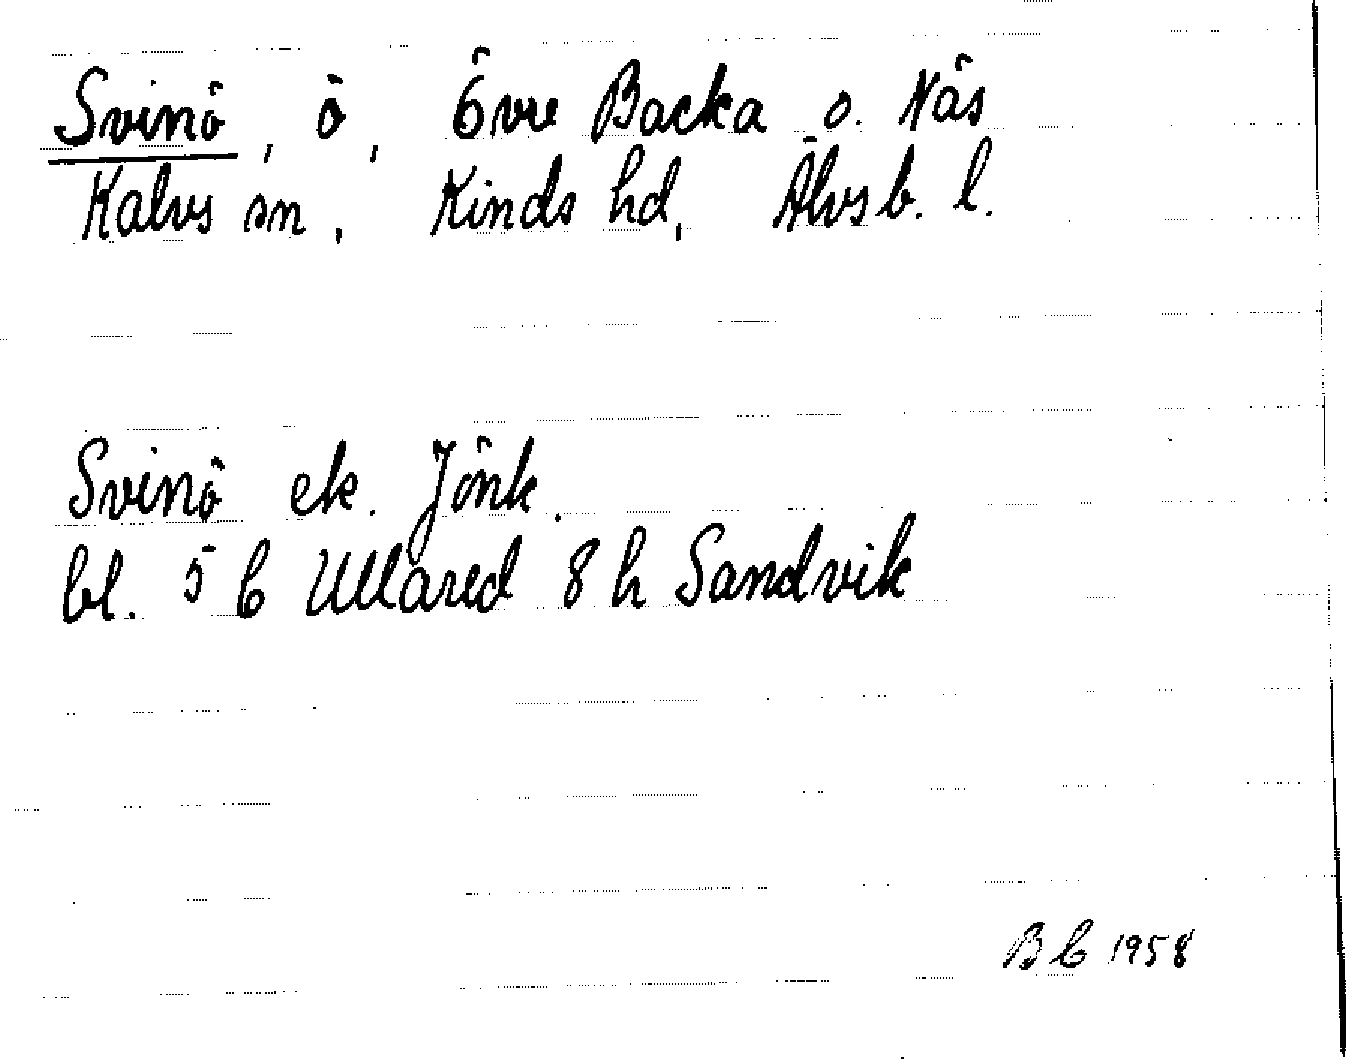 Svinö, ö, Övre Backa o. Näs
Kalvs sn, Kinds hd, Älvsb. l.
Svinö ek. Jönk.
bl. 5 b Ullared 8 h Sandvik
B b 1958